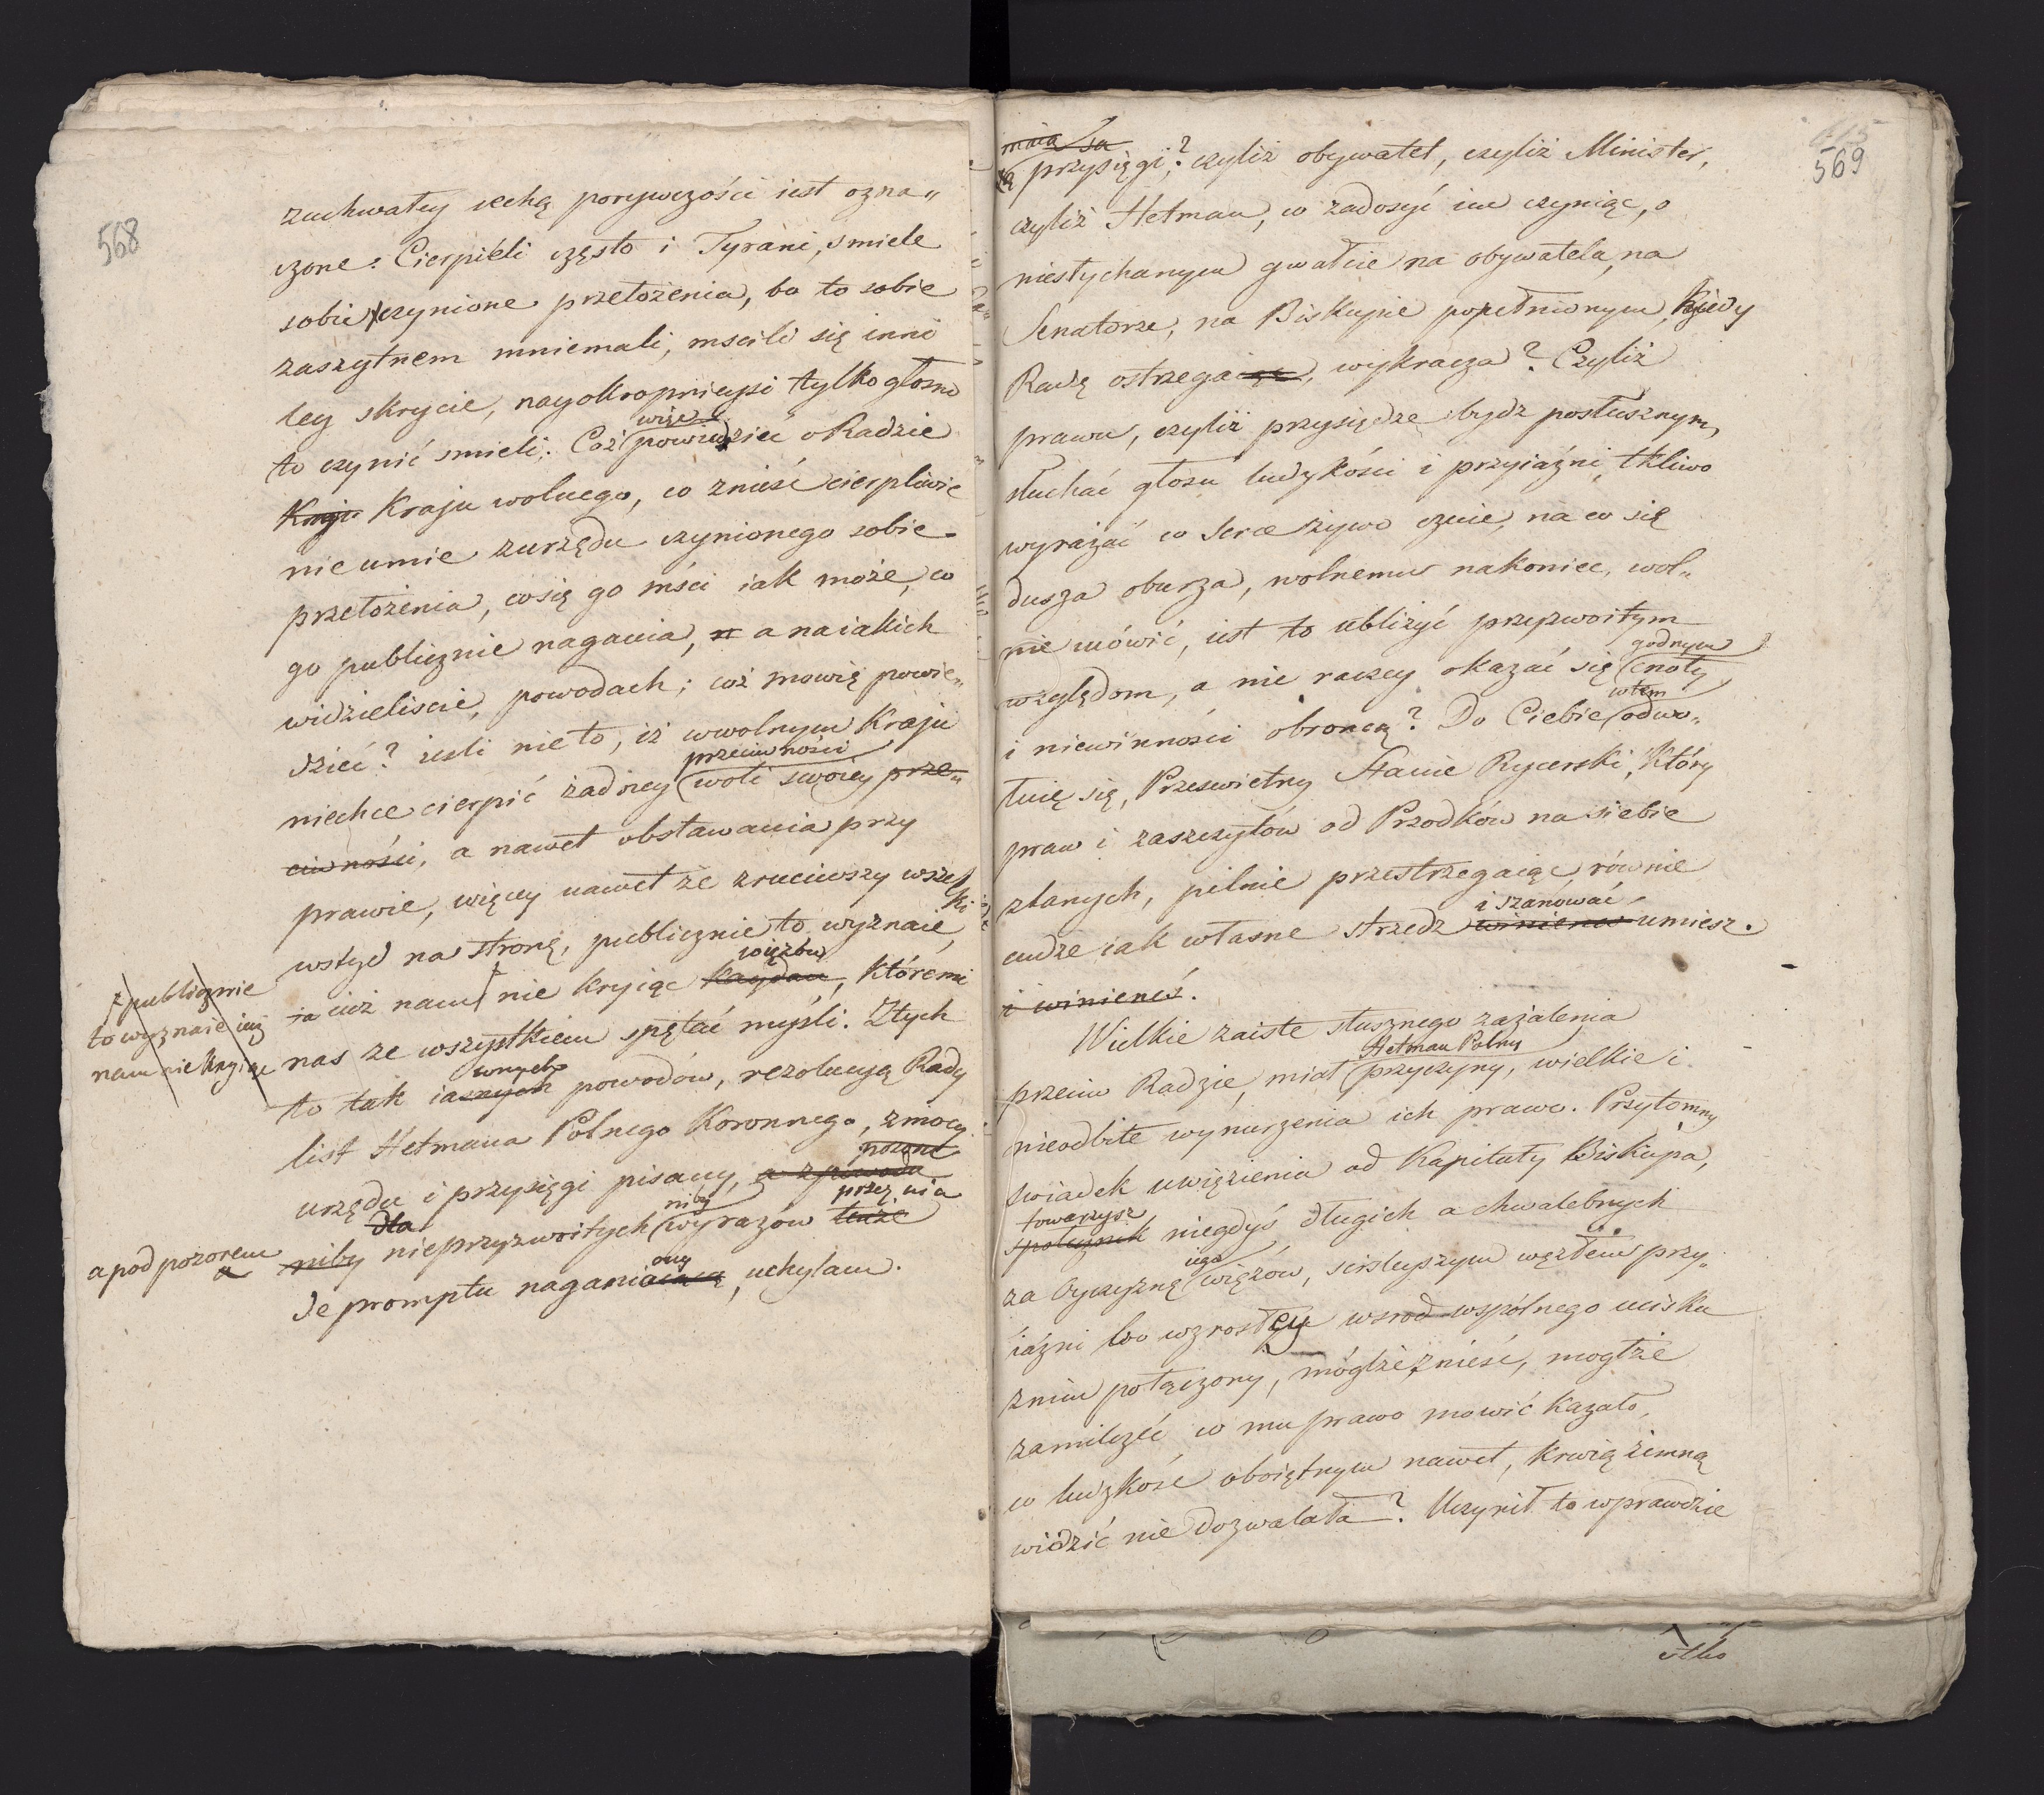 568
zuchwałey cechą porywczości iest ozna„
czone. Cierpieli często i Tyrani, smiele
sobie czynione przełożenia, bo to sobie
zaszczytnem mniemali, mscili się inni
lecz skrycie, nayokropnieysi tylko głosno
to czynić smieli. Coż powiedzieć o Radzie
więc
Kraju Kraju wolnego, co znieść cierpliwie
nie umie z urzędu czynionego sobie
przełożenia, co się go mści iak może, co
go publicznie nagania, n a na iakich
widzieliscie, powodach; coż mowię powie„
dzieć? iesli nie to, iż w wolnym Kraju
przeciwności
niechce cierpić żadney woli swoiey prze„
ciwności, a nawet obstawania przy
prawie, więcey nawet że zruciwszy wszelki
wstyd na stronę, publicznie to wyznaie
więzów
ia iuż nam nie kryiąc kaydan, któremi
publicznie
to wyznaie iuż
nam nie kryiąc
nas ze wszystkiem spętać myśli. Z tych
to tak iasnych powodów, rezolucyą Rady
wnych
list Hetmana Polnego Koronnego, z mocy
urzędu i przysięgi pisany, a z powodu
pozorne
dla niby przez nia
niby nieprzyzwoitych wyrazów teraz
a pod pozorem
de promptu nagania uchylam.
oney
569
maią są
przysięgi? czyliż obywatel, czyliż Minister,
czyliż Hetman, co zadosyć im czyniąc, o
niesłychanym gwałcie na obywatela, na
Senatorze, na Biskupie popełnionym, kiedy
Radę ostrzegaiąc, wykracza? Czyliż
prawu, czyliż przysiędze bydz posłusznym,
słuchać głosu ludzkości i przyiaźni, tkliwo
wyrażać co serce żywo czuie, na co się
dusza oburza, wolnemu nakoniec, wol„
nie mówić, iest to ubliżyć przyzwoitym
godnym
względom, a nie raczey okazać się cnoty
w tem
i niewinności obroncą? Do Ciebie odwo„
łuię się, Przeswietny Stanie Rycerski, Który
praw i zaszczytów od Przodków na siebie
zlanych, pilnie przestrzegaiąc, równie
i szanować
cudze iak własne strzedz winienes umiesz.
i winieneś.
Wielkie zaiste słusznego zażalenia
Hetman Polny
przeciw Radzie, miał przyczyny, wielkie i
nieodbite wynurzenia ich prawo. Przytomny
swiadek uwięzienia od Kapituły Biskupa,
towarzysz
spolecznik niegdyś długich a chwalebnych
iego
za Oyczyznę więzów, scisleyszym węzłem przy„
iaźni bo wzrosłey wsrod wspólnego ucisku
z nim połączony, mógłże znieść, mogłże
zamilczeć co mu prawo mowić kazało,
co ludzkość oboiętnym nawet, krwią zimną
widzić nie dozwalała? Uczynił to wprawdzie